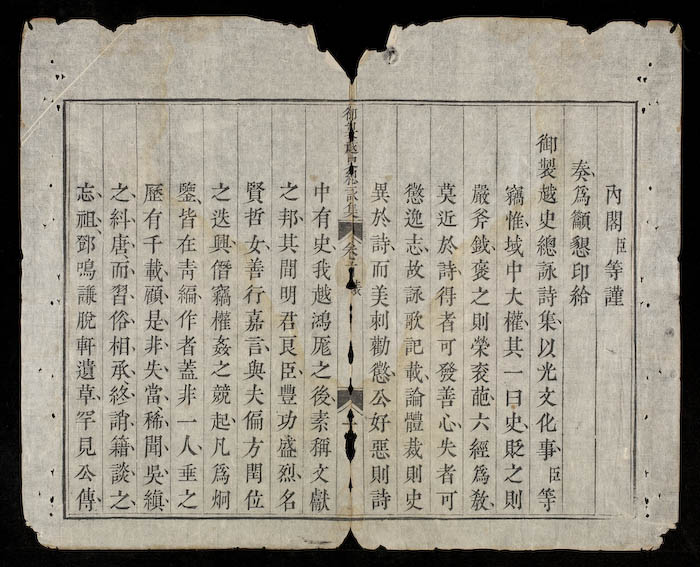 內閣臣等謹
奏爲籲懇印給
御製越史總詠詩集以光文化事臣等
竊惟域中大權其一曰史貶之則
嚴斧鉞褒之則榮袞葩六經爲敎
莫近於詩得者可發善心失者可
懲逸志故詠歌記載論體裁則史
異於詩而美刺勸懲公好惡則詩
御製越史總詠集 卷 表
中有史我越鴻厖之後素稱文獻
之邦其間明君良臣豐功盛烈名
賢哲女善行嘉言與夫偏方閏位
之迭興僭竊權姦之競起凡爲炯
鑒皆在靑編作者蓋非一人垂之
歷有千載顧是非失當稀聞吳縝
之糾唐而習俗相承終誚籍談之
忘祖鄧鳴謙脫軒遺草罕見公傳